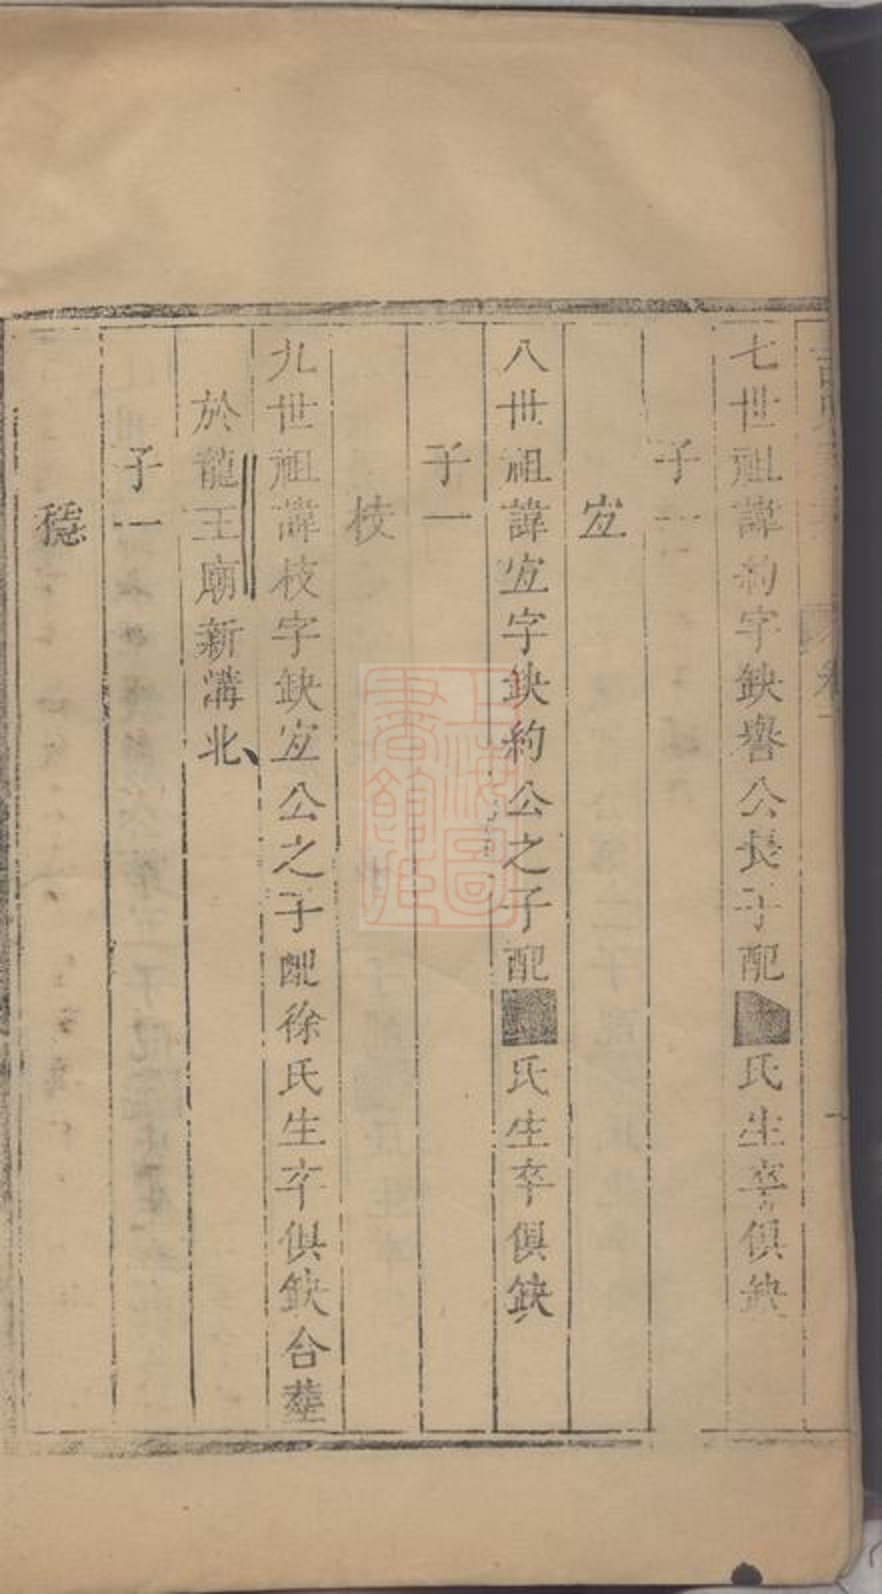 七世祖諱約字缺譽公長子配■氏生卒俱缺
子一
宐
八世祖諱宐字缺約公之子配■氏生卒俱缺
子一
枝
九世祖諱枝字缺宐公之子配徐氏生卒俱缺合塟
於龍王廟新溝北
子一
穏
上海圖書館藏